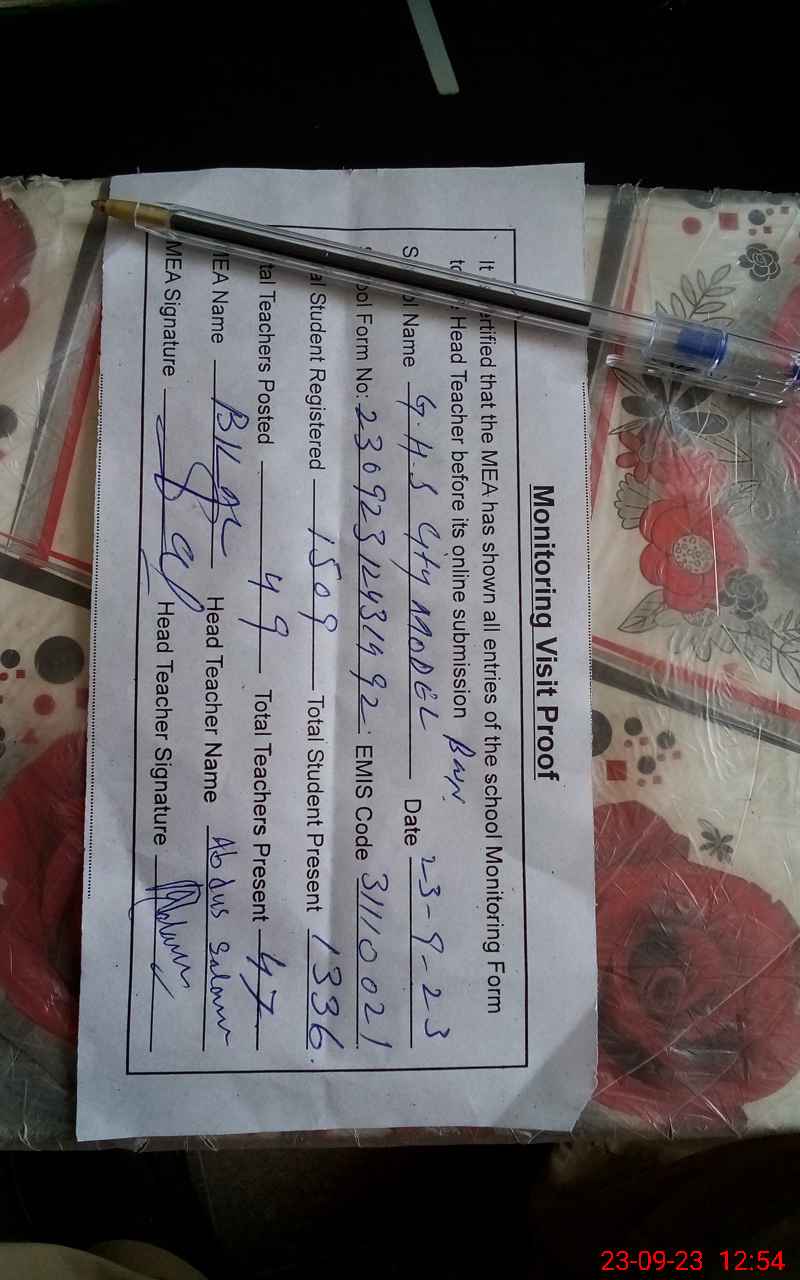 Monitoring Visit Proof
It ertified that the MEA has shown all entries of the school Monitoring Form
to Head Teacher before its online submission
School Name G.H.S City MODEL Date 23-9-23
ool Form No: 230923 EMIS Code 31110021
al Student Registered 1509 Total Student Present 1336.
tal Teachers Posted 49 Total Teachers Present 47
MEA Name Head Teacher Name Abdus Salam
MEA Signature Head Teacher Signature
23-09-23 12:54